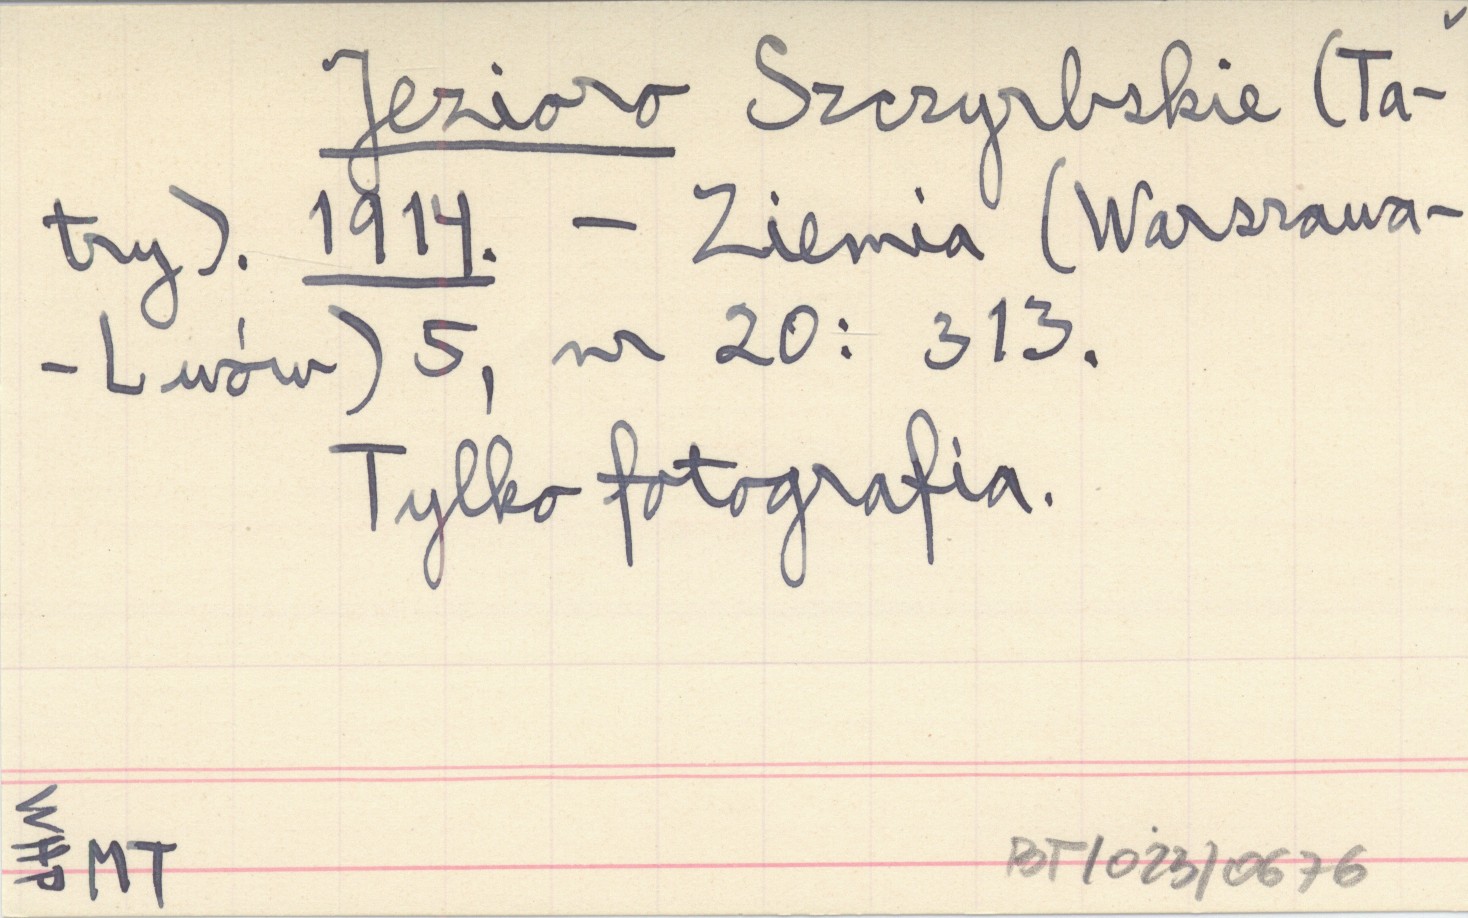 Jezioro Szczyrbskie (Ta-
try). 1914. – Ziemia (Warszawa-
-Lwów) 5, nr 20: 313.
Tylko fotografia.
WHP
MT
BT/023/0676